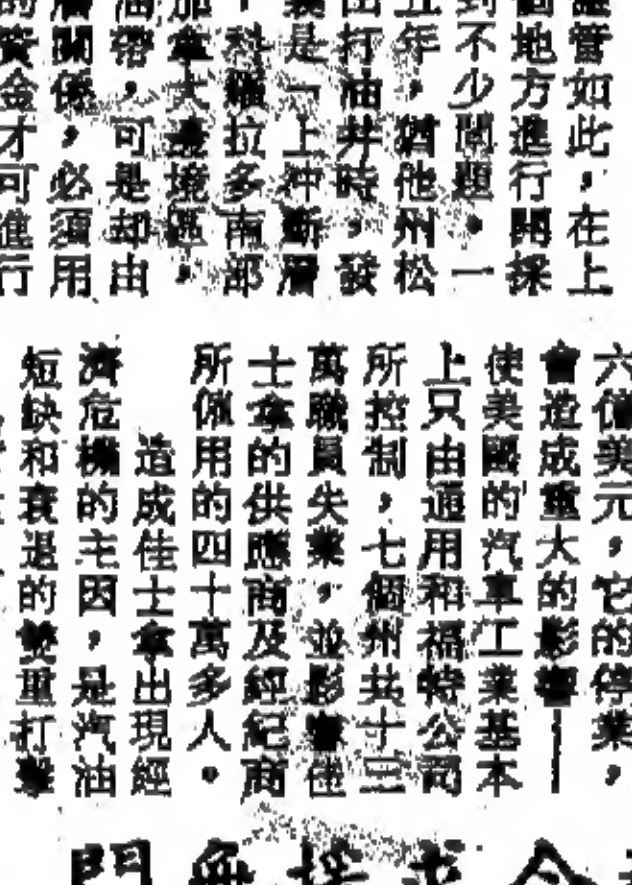 儘管如此，在上
個地方進行開採
到不少問題。一
五年，猶他州松
出打油井時，發
義是「上沖斷層
，科羅拉多南部
加拿大邊境區，
油帶，可是却由
濟關係，必須用
的資金才可進行
六億美元，它的停業，
會造成重大的影響—
使美國的汽車工業基本
上只由通用和福特公司
所控制，七個州共十三
萬職員失業，並影響佳
士拿的供應商及經紀商
所僱用的四十萬多人。
造成佳士拿出現經
濟危機的主因，是汽油
短缺和衰退的雙重打擊